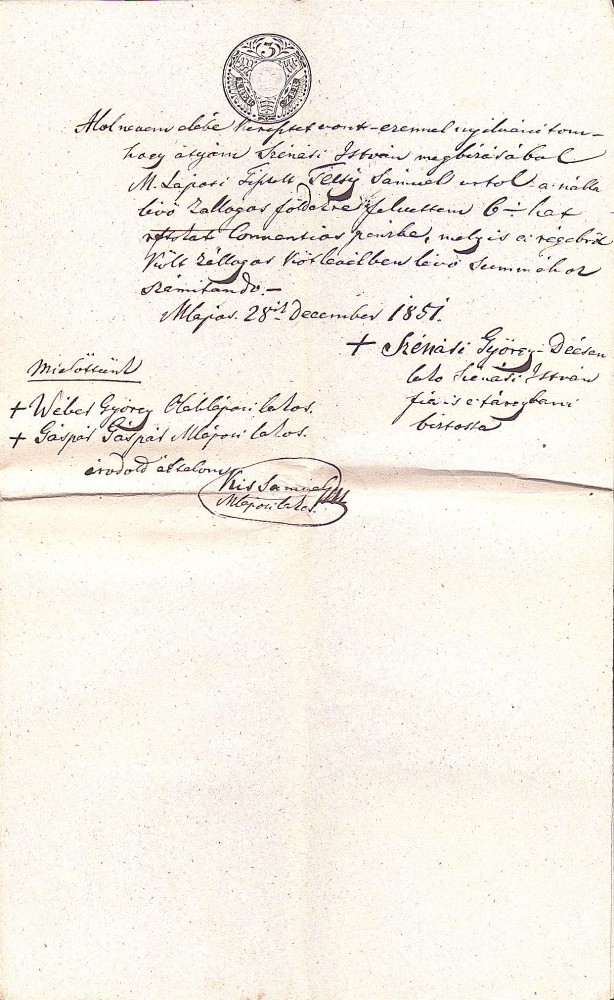 3
Alol nevem elébe keresztet vont ezennel nyilvánitom
hogy atyám Szénási István megbizásábol
M. Láposi Tiszt. Télsy Sámuel urtol a nálla
lévő Zállogos földekre felvettem 6 – hat
rftokat Conventios pénzbe, mely is a régebről
költ Zállogos Kötlevélben lévő Summához
számitando. –
Mlápos. 28ik December 1851.
+ Szénási György Décsen
lako Szénási István
fia is e tárgybani
biztossa
Mielőttünk
+ Wéber György Oláhláposi lakos.
+ Gáspár Gáspár Mláposi lakos.
általom
Kis Samuel
Mláposi lakos.